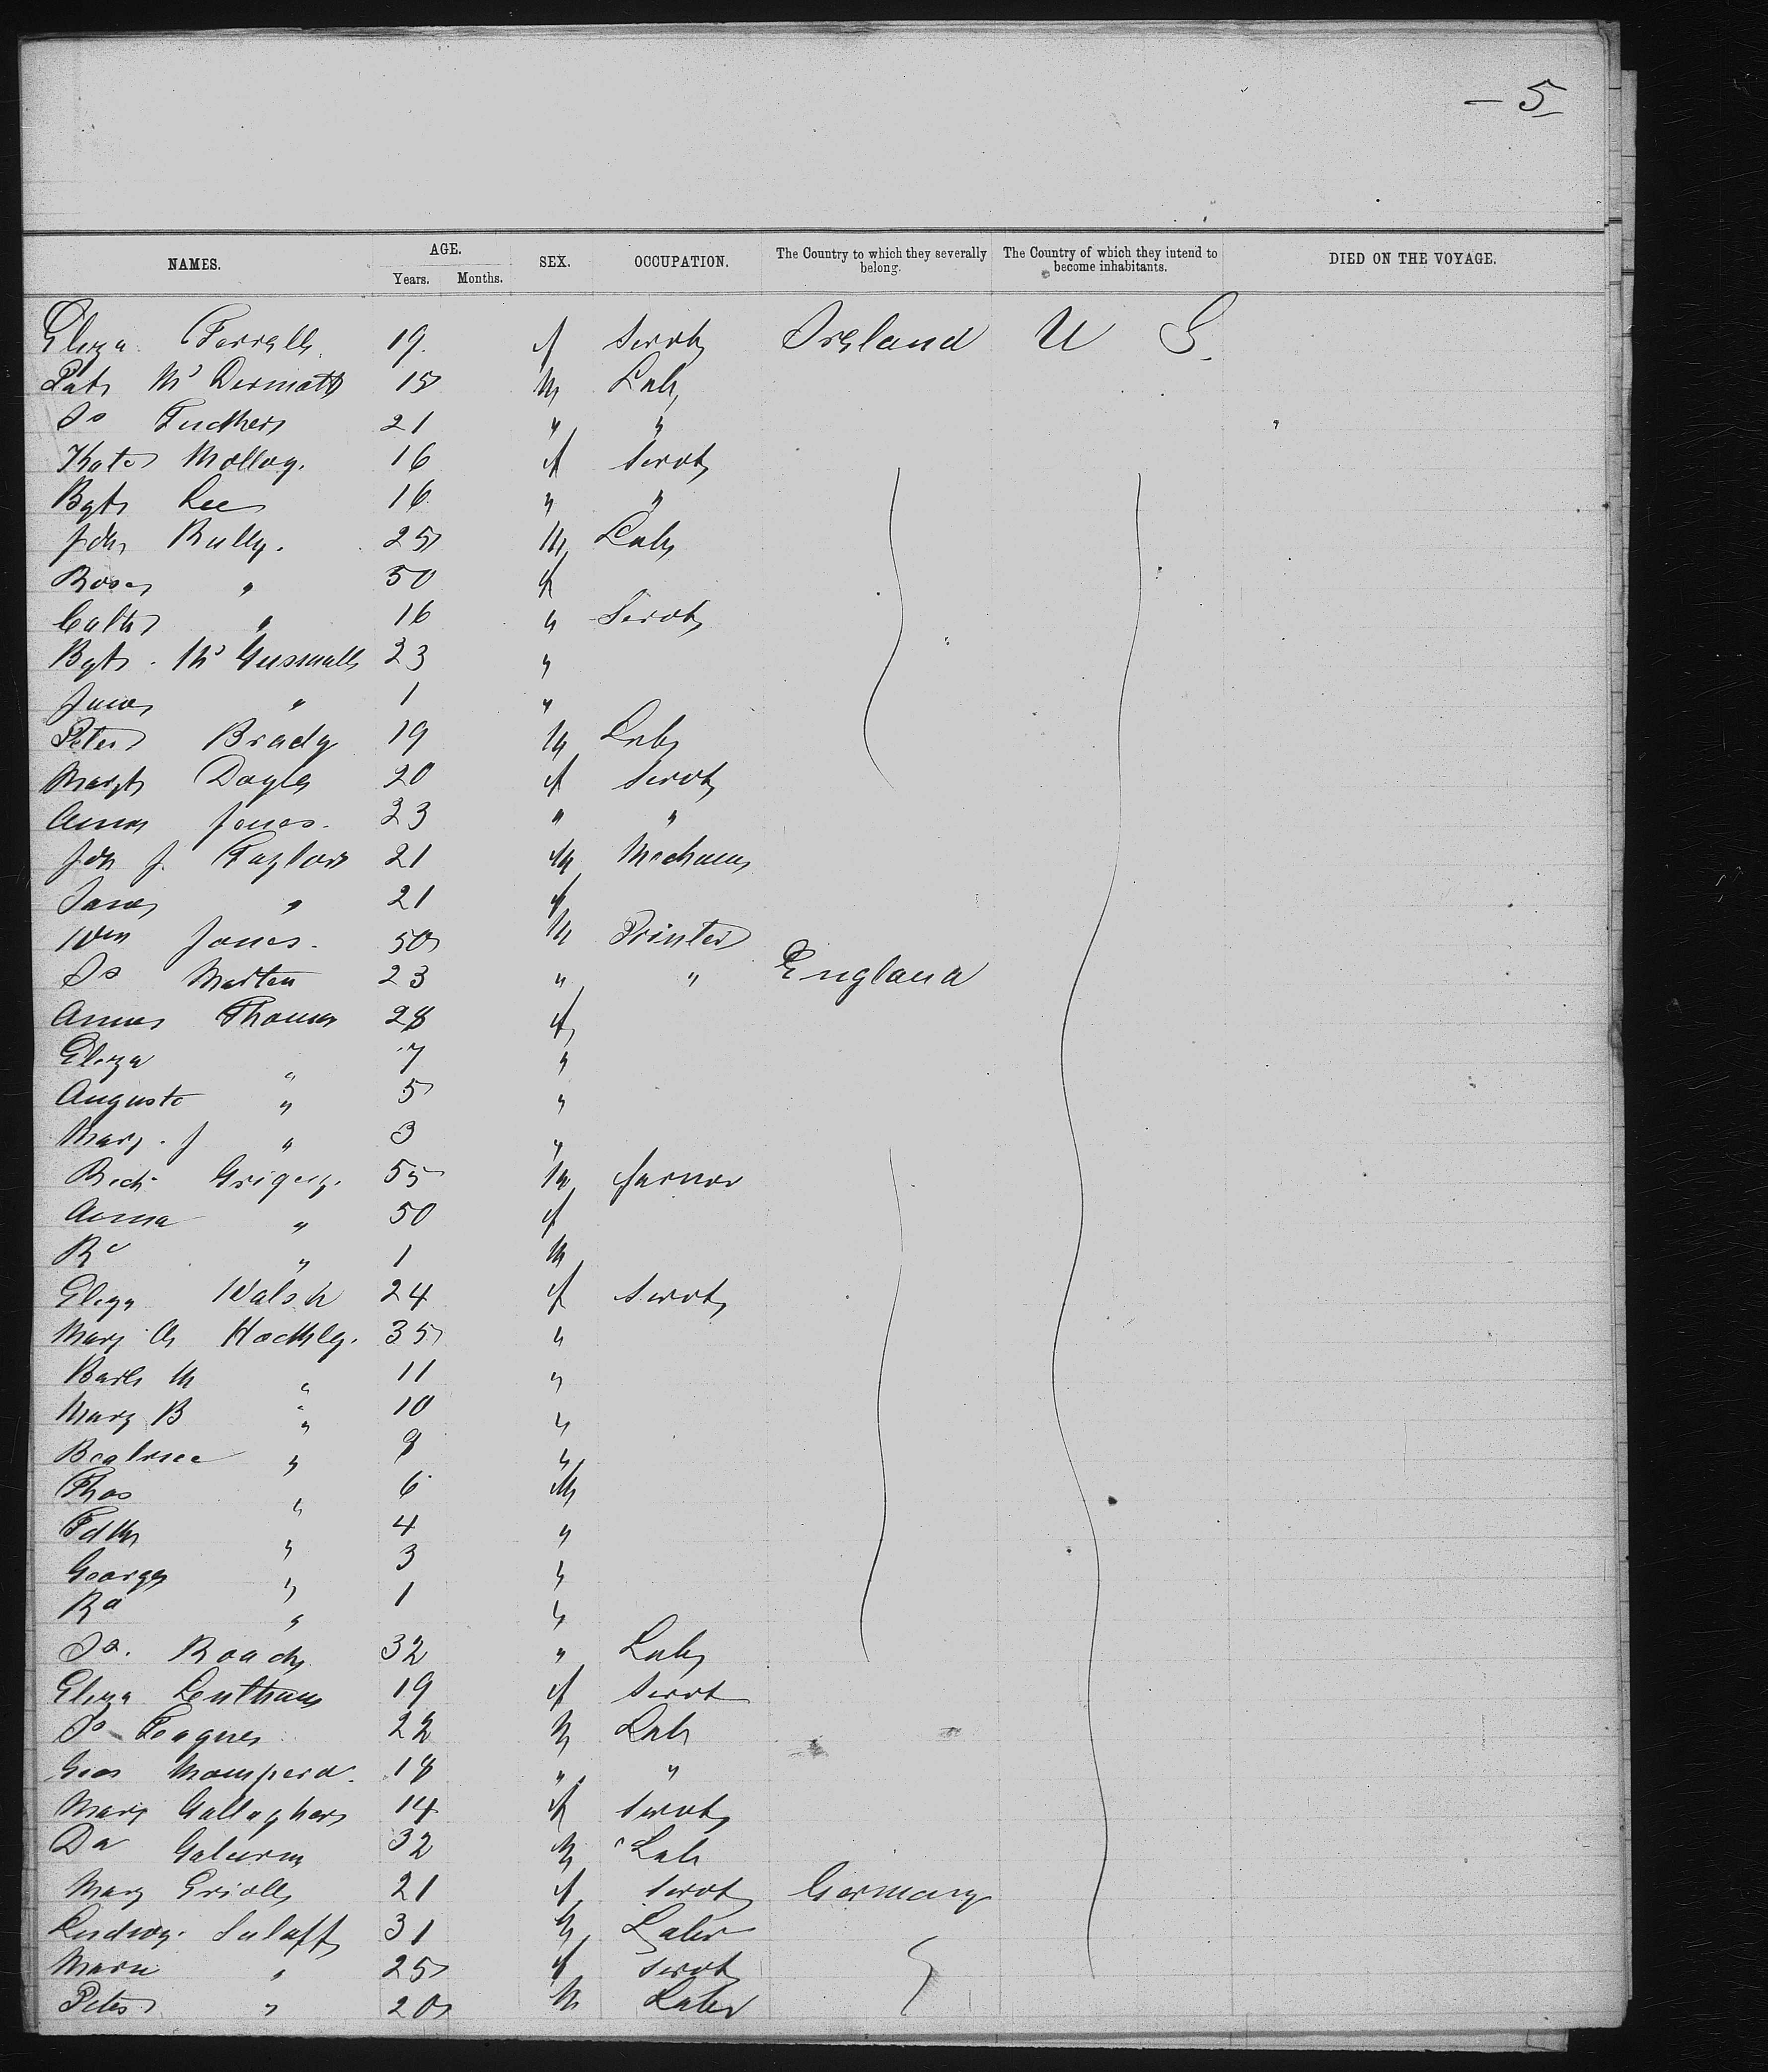 — 5
NAMES. AGE. SEX. OCCUPATION. The Country to which they severally belong. The Country of which they intend to become inhabitants. DIED ON THE VOYAGE.
Years. Months.
Eliza Farrell 19 f Servt Ireland U S.
Pat Mc Dermott 15 M Lab
Js 21 " "
Kate Molloy. 16 f Servt
Bgt Lee 16 " "
Jon Rully. 25 M Lab
Rose " 50 f
Cath " 16 " Servt
Bgt. Mc 23 "
Jane " 1 "
Peter Brady 19 M Lab
Margt Doyle 20 f Servt
Anna Jones. 23 " "
Jon J. Taylor 21 M Mechanic
Jane " 21 f
Wm Jones. 50 M Printer
Js Marten 23 " " England
Annie Thomas 28 f
Eliza " 7 "
Augusta " 5 "
Mary. J " 3 "
Rich Grigery. 55 M farmer
Anna " 50 f
Rd " 1 M
Eliza Walsh 24 f Servt
Mary A Hockley. 35 "
Barb M " 11 "
Mary B " 10 "
Beatrice " 8 "
Thos " 6 M
" 4 "
George " 3 "
Rd " 1 "
Js. Roach 32 " Lab
Eliza 19 f Servt
Js Teague 22 M Lab
Geo 18 " "
Mary Gallagher 14 f Servt
Da 32 M Lab
Mary 21 f Servt Germany
Ludwig. 31 M Labr
Marie " 25 f Servt
Peter " 20 M Labr